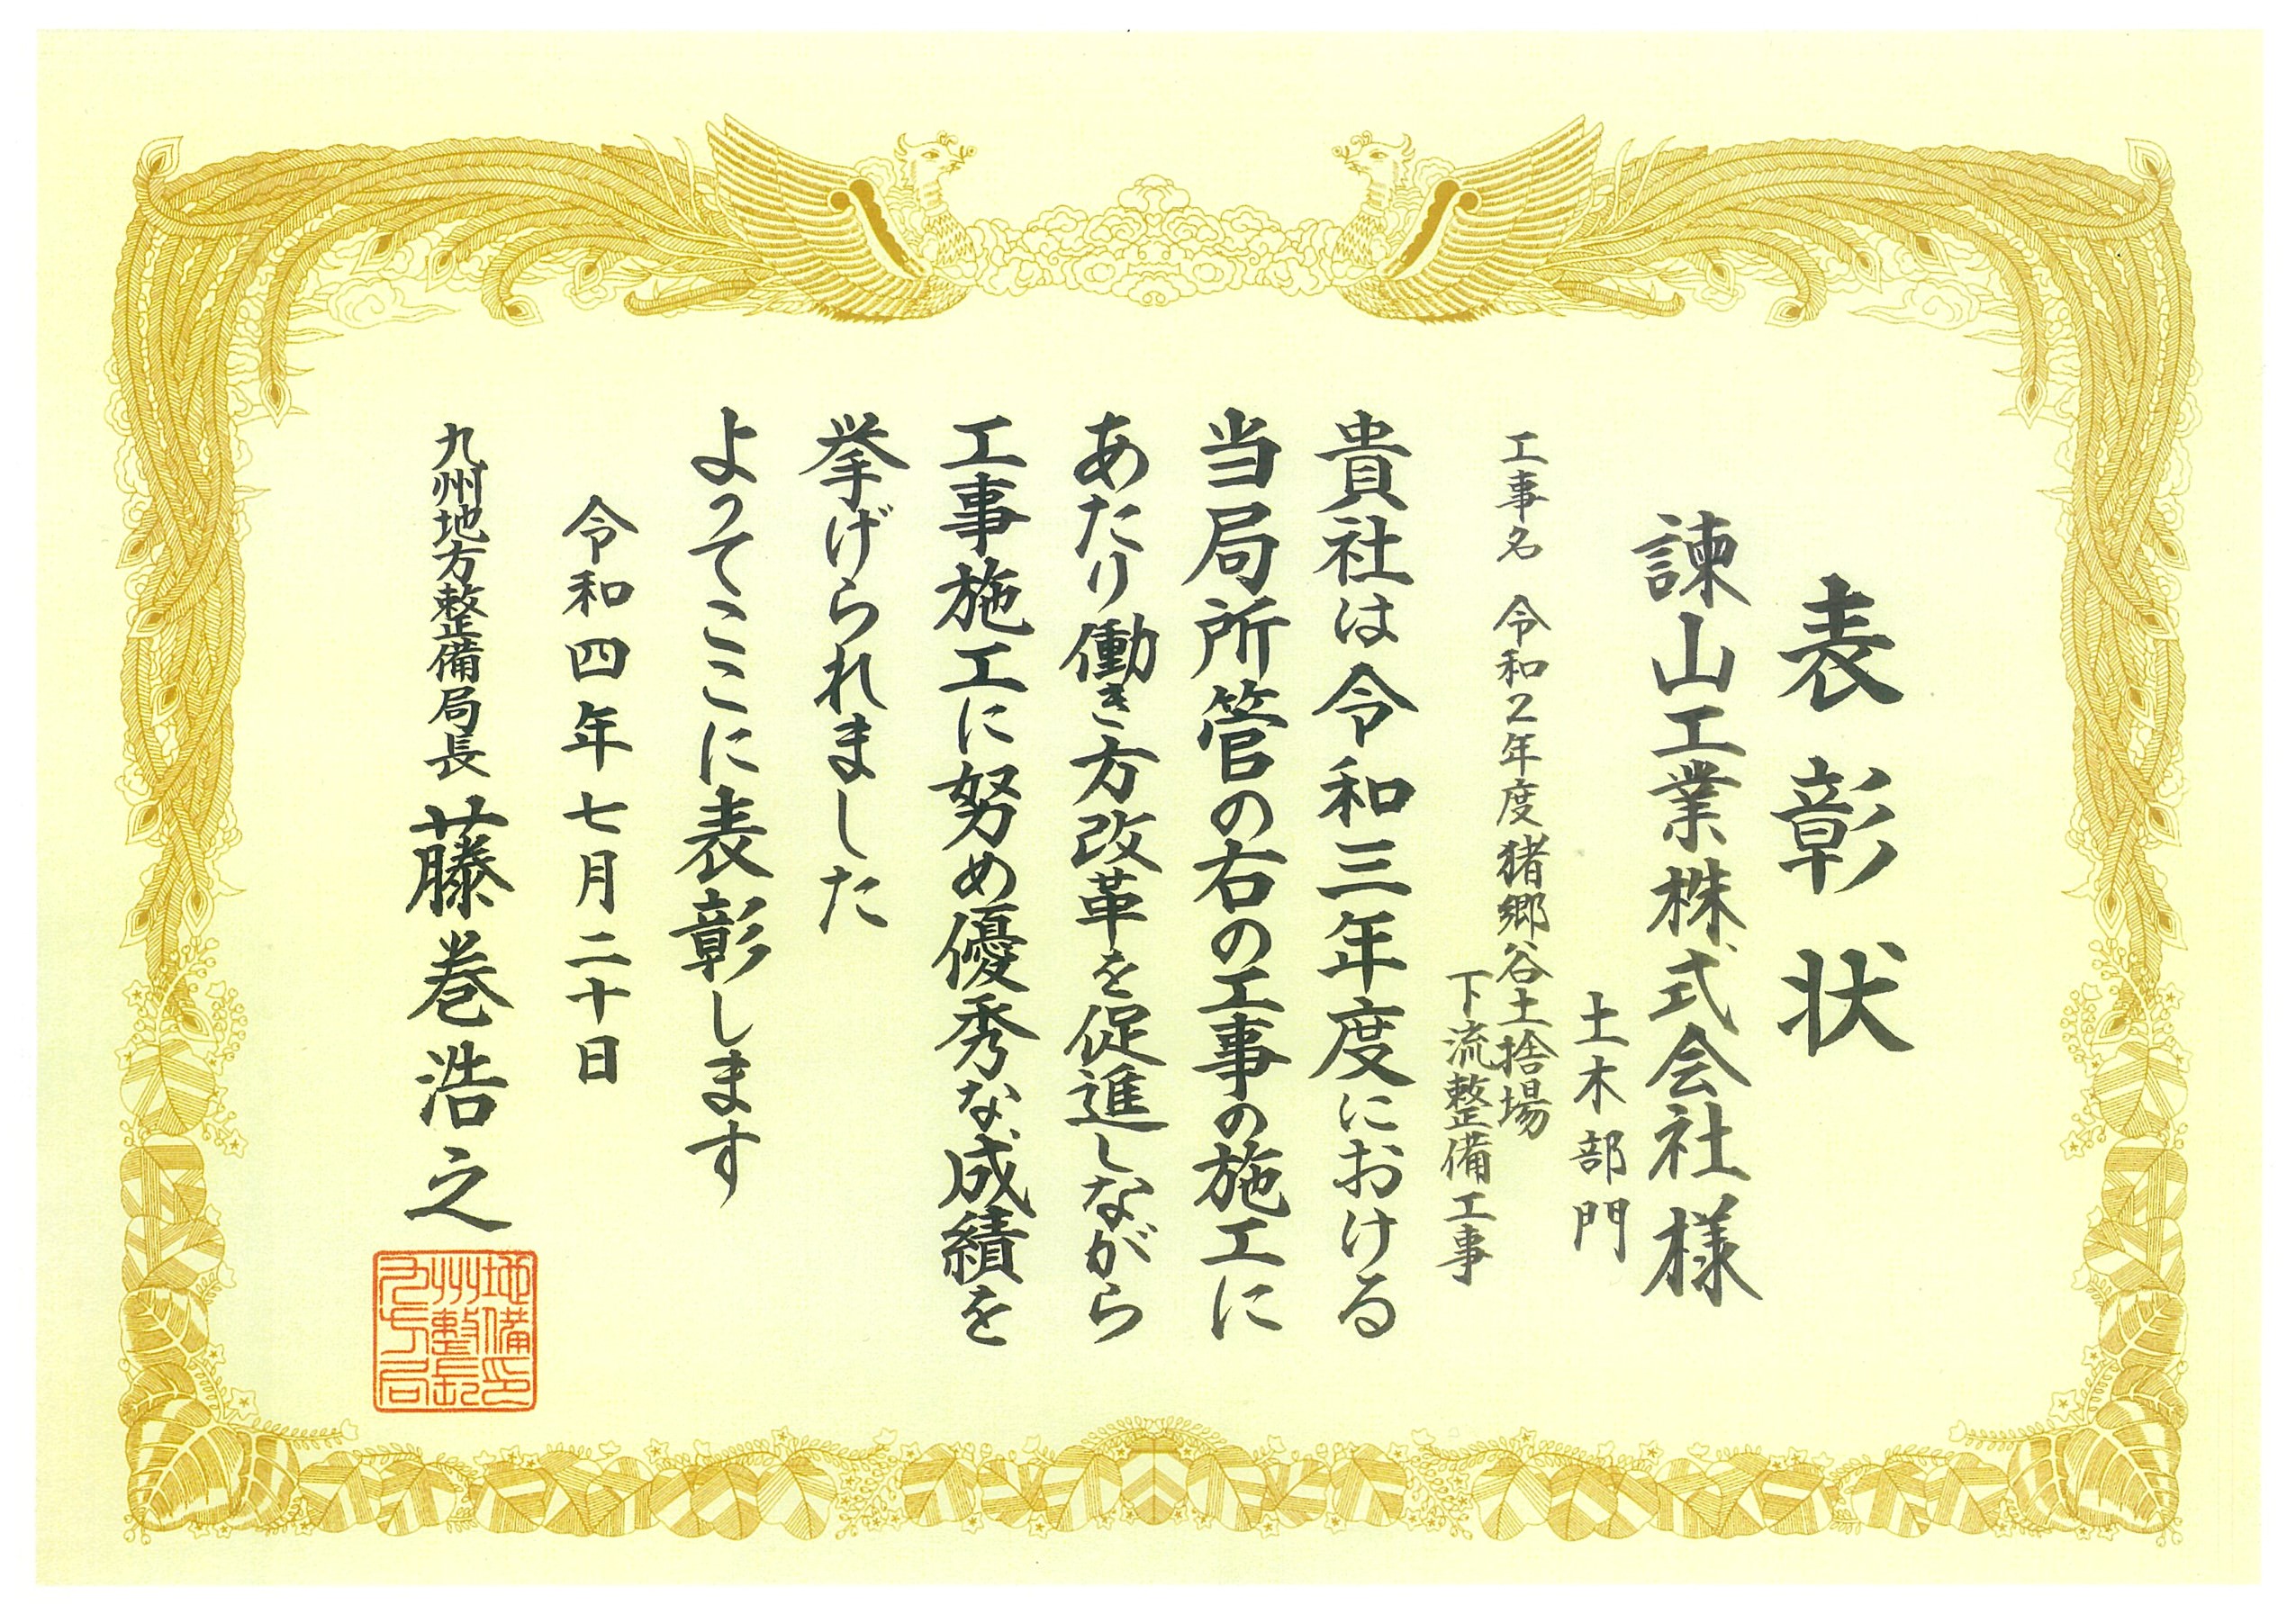 表彰状
諫山工業株式会社様
土木部門
工事名 令和2年度猪郷谷土捨場
下流整備工事
貴社は令和三年度における
当局所管の右の工事の施工に
あたり働き方改革を促進しながら
工事施工に努め優秀な成績を
挙げられました
よってここに表彰します
令和四年七月二十日
九州地方整備局長 藤巻浩之
九州地
方整備
局長印